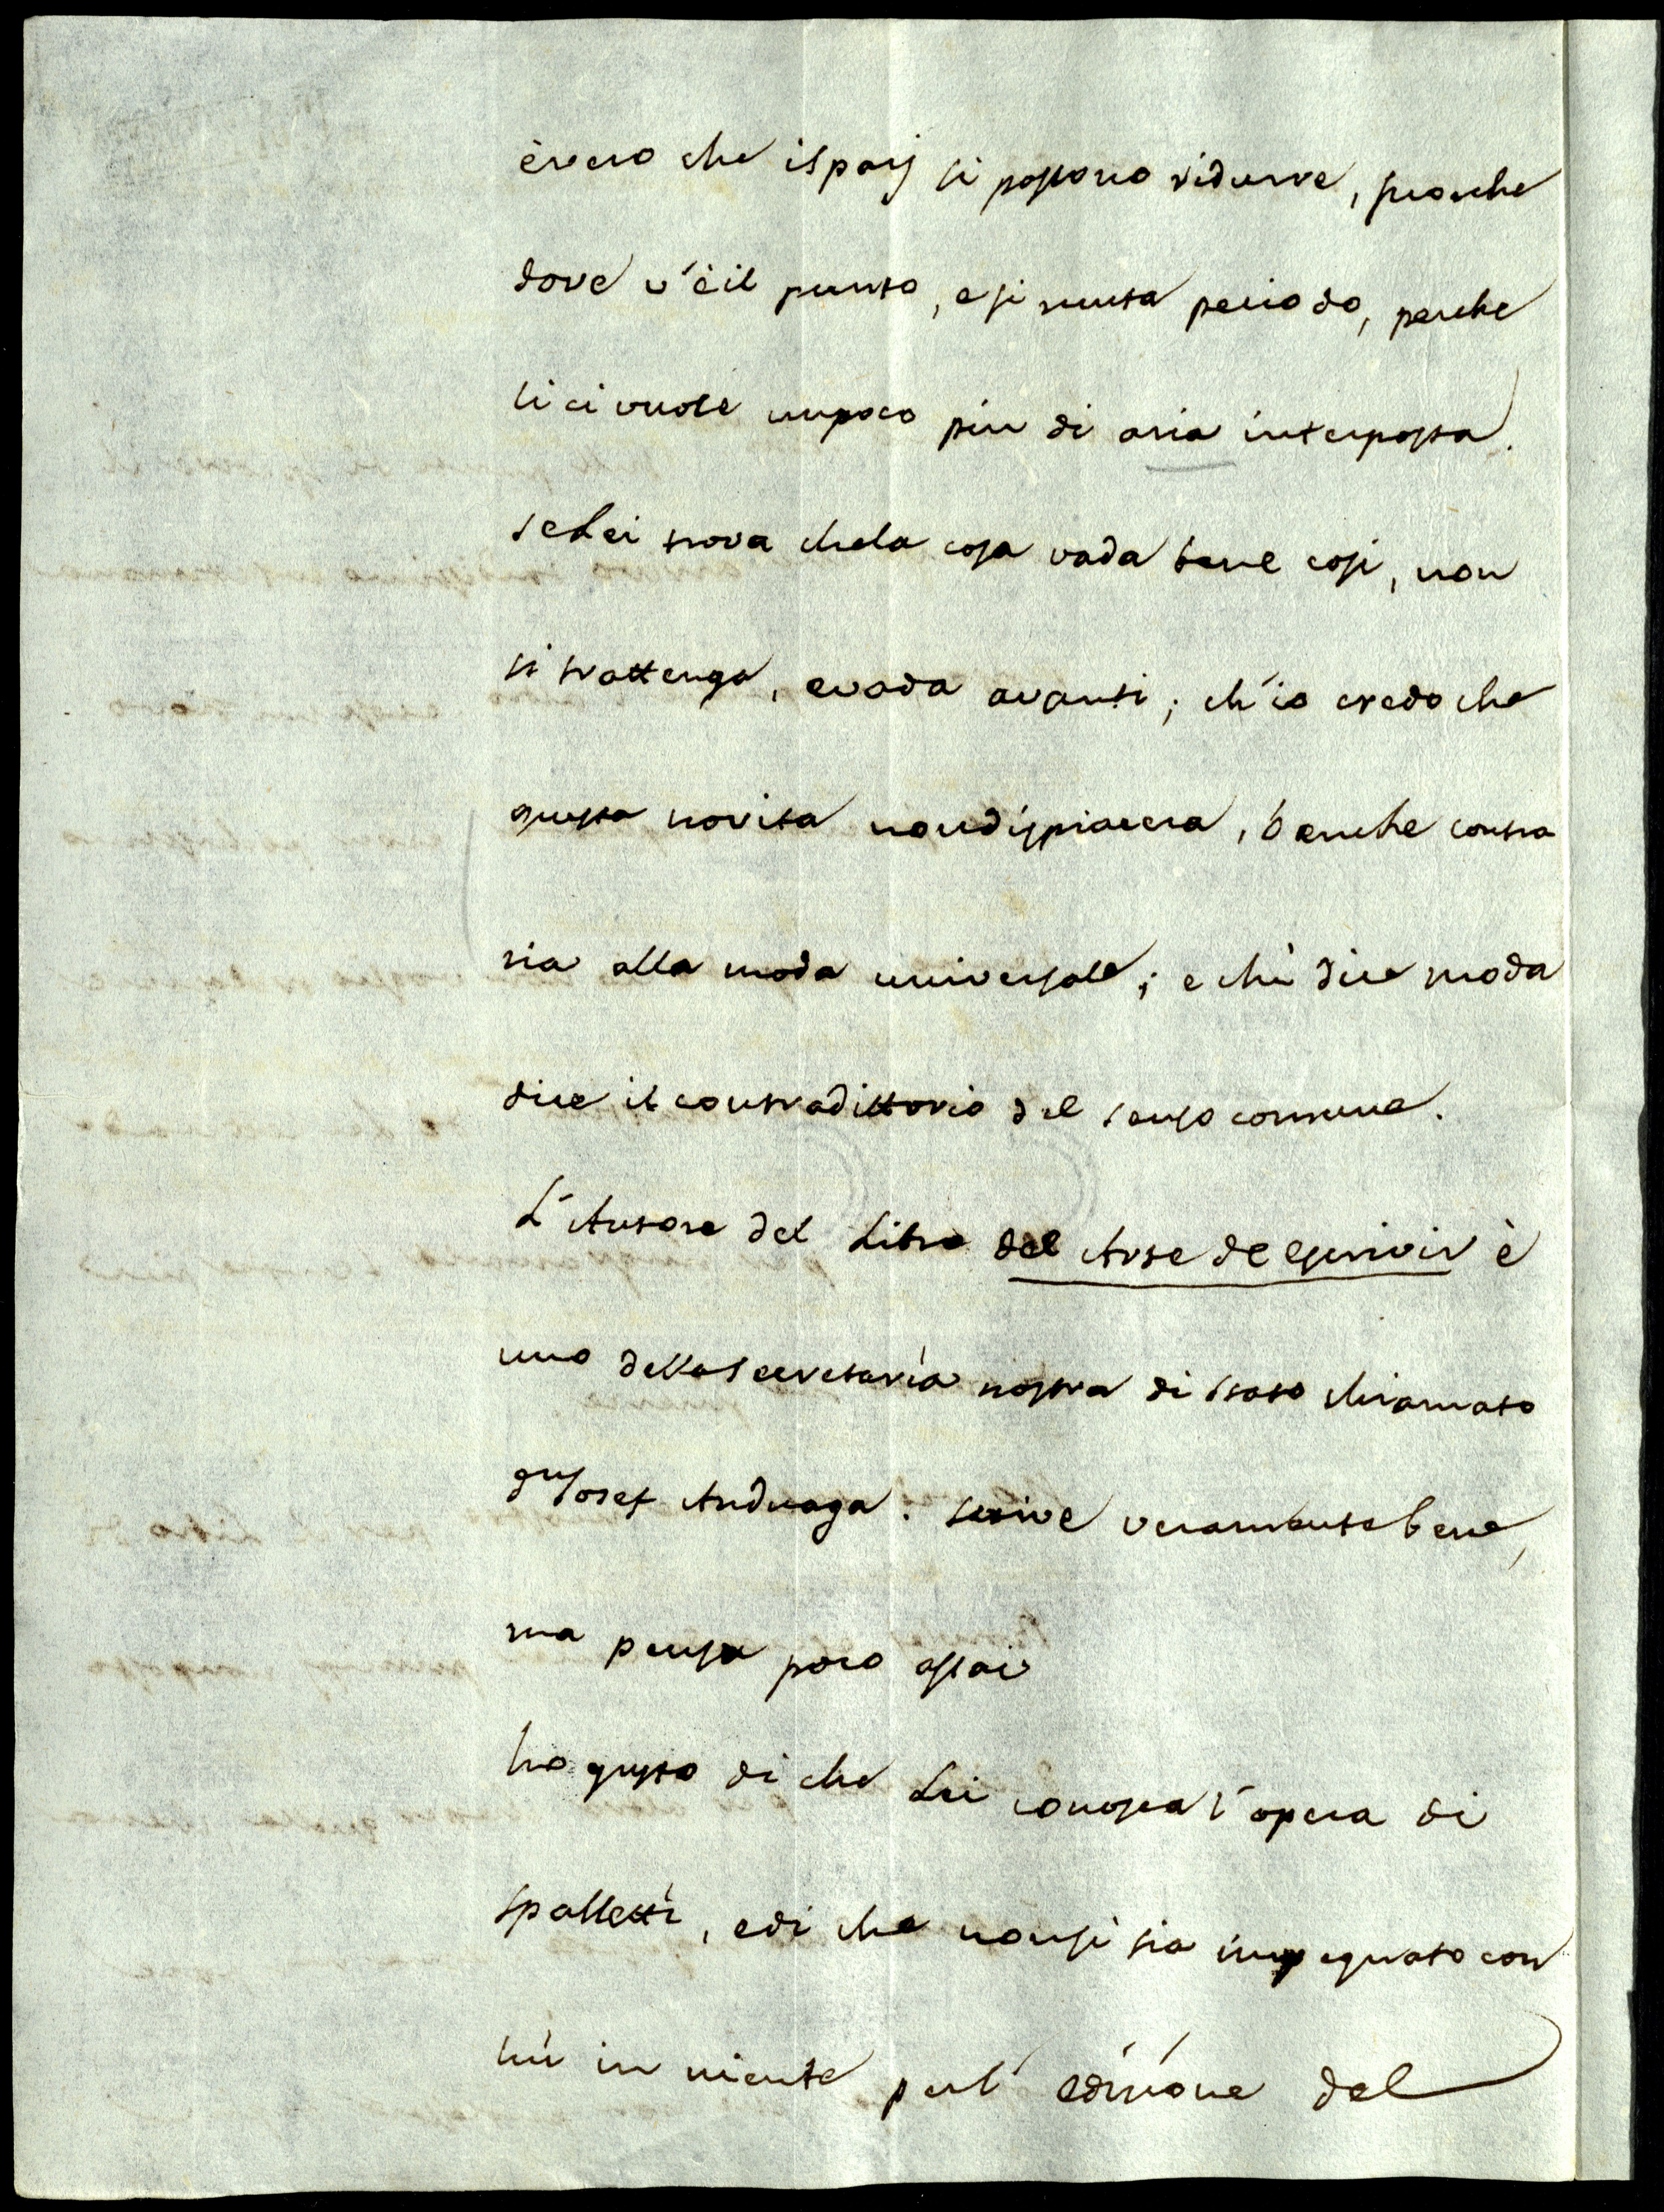 è vero che i spazj si possono ridurre, fuorche
dove v'è il punto, e si muta periodo, perche
li ci vuole un poco piu di aria interposta.
se Lei trova che la cosa vada bene cosi, non
si trattenga, e vada avanti; ch'io credo che
questa novita non dispiacera, benche contra
ria alla moda universale; e chi dice moda
dice il contradittorio del senso comune.
L'Autore del Libro del Arte de escrivir è
uno della Secretaría nostra di Stato chiamato
Dn Josef Anduaga. scrive veramente bene,
ma pensa poco assai
ho gusto di che Lei conosca l'opera di
Spalletti, e di che non si sia impegnato con
lui in niente per l'edizione del